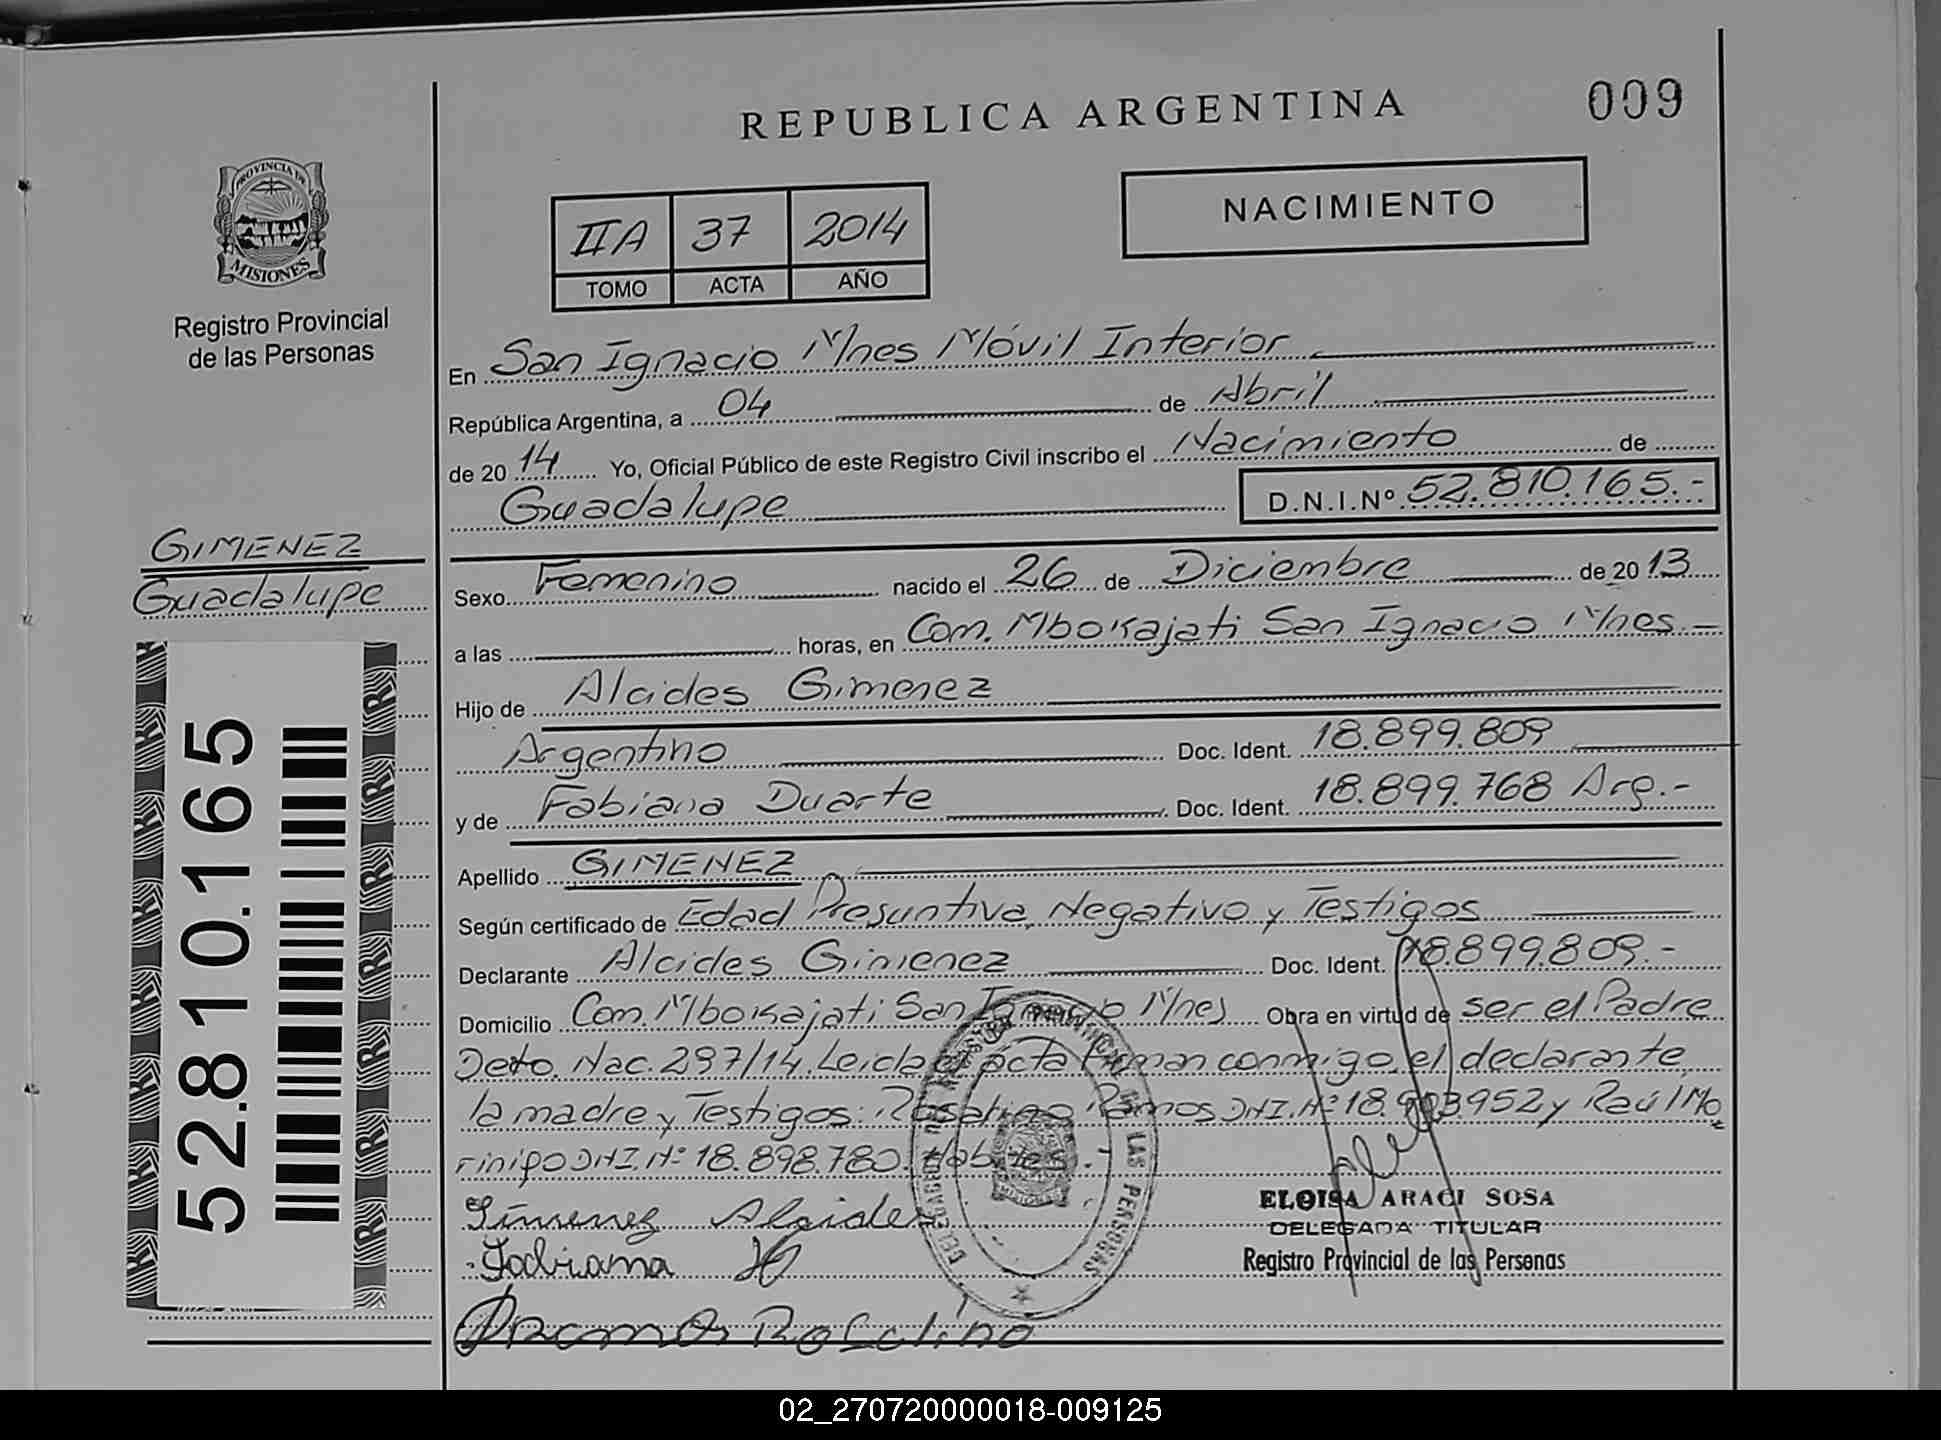 REPUBLICA ARGENTINA
009
PROVINCIA DE
MISIONES
Registro Provincial
de las Personas
IIA 37 2014
TOMO ACTA AÑO
NACIMIENTO
En San Ignacio Mnes Móvil Interior
República Argentina, a 04 de Abril
de 20 14 Yo, Oficial Público de este Registro Civil inscribo el Nacimiento de
Guadalupe D.N.I.Nº 52.810.165.-
GIMENEZ
Guadalupe
52.810.165
Sexo Femenino nacido el 26 de Diciembre de 20 13
a las horas, en Com. Mbokajati San Ignacio Mnes.-
Hijo de Alcides Gimenez
Argentino Doc. Ident. 18.899.809
y de Fabiana Duarte Doc. Ident. 18.899.768 Arg.-
Apellido GIMENEZ
Según certificado de Edad Presuntiva, Negativo y Testigos
Declarante Alcides Gimenez Doc. Ident. 18.899.809.-
Domicilio Com. Mbokajati San Ignacio Mnes Obra en virtud de ser el Padre
Dcto. Nac. 297/14. Leida el acta firman conmigo, el declarante,
la madre y Testigos: Rosalino Ramos DNI.Nº 18.903.952 y Raúl Mo
rinigo DNI.Nº 18.898.780.
Gimenez Alcides
Fabiana
Ramos Rosalino
DE LAS PERSONAS
ELOISA ARACI SOSA
DELEGADA TITULAR
Registro Provincial de las Personas
02_270720000018-009125